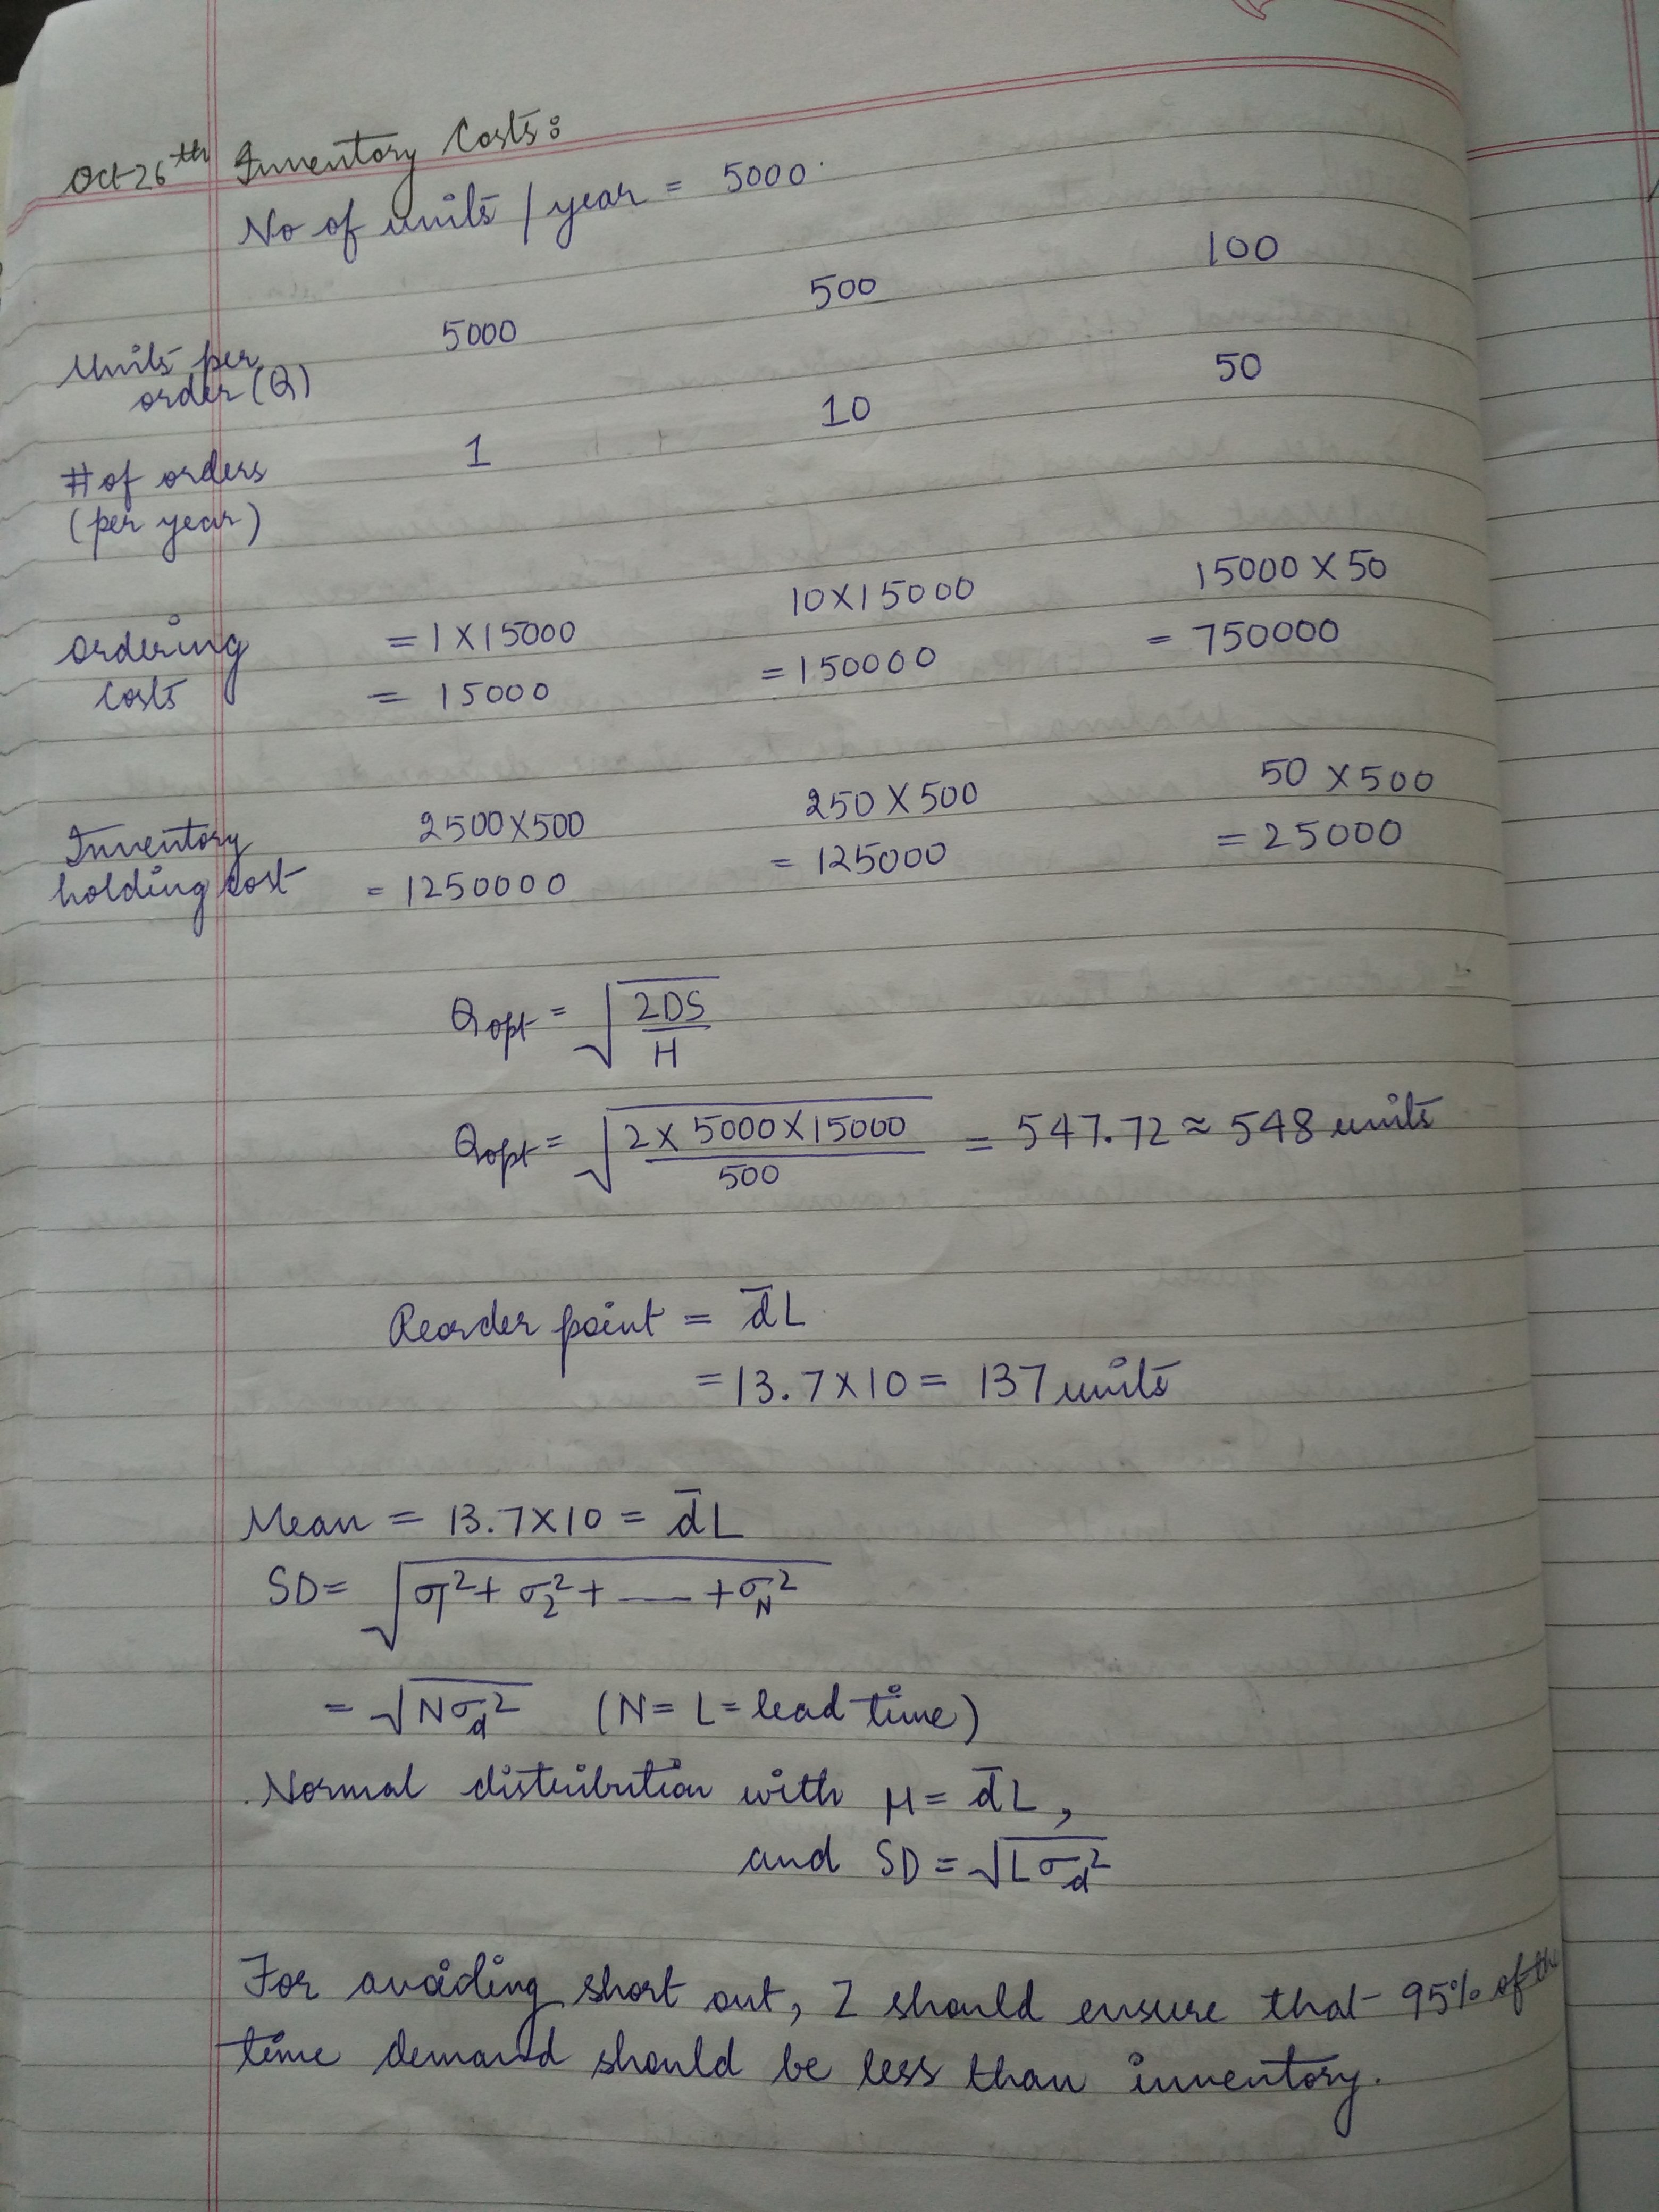 Oct 26th Inventory Costs:
No of units / year = 5000
Units per order (Q) 5000 500 100
# of orders (per year) 1 10 50
Ordering costs = 1 X 15000 10 X 15000 15000 X 50
= 15000 = 150000 = 750000
Inventory holding cost 2500 X 500 250 X 500 50 X 500
= 1250000 = 125000 = 25000
Qopt = √(2DS / H)
Qopt = √(2 X 5000 X 15000 / 500) = 547.72 ≈ 548 units
Reorder point = d̄L
= 13.7 X 10 = 137 units
Mean = 13.7 X 10 = d̄L
SD = √(σ1² + σ2² + — + σN²)
= √(Nσd²) (N = L = lead time)
Normal distribution with μ = d̄L,
and SD = √(Lσd²)
For avoiding short out, I should ensure that 95% of the
time demand should be less than inventory.